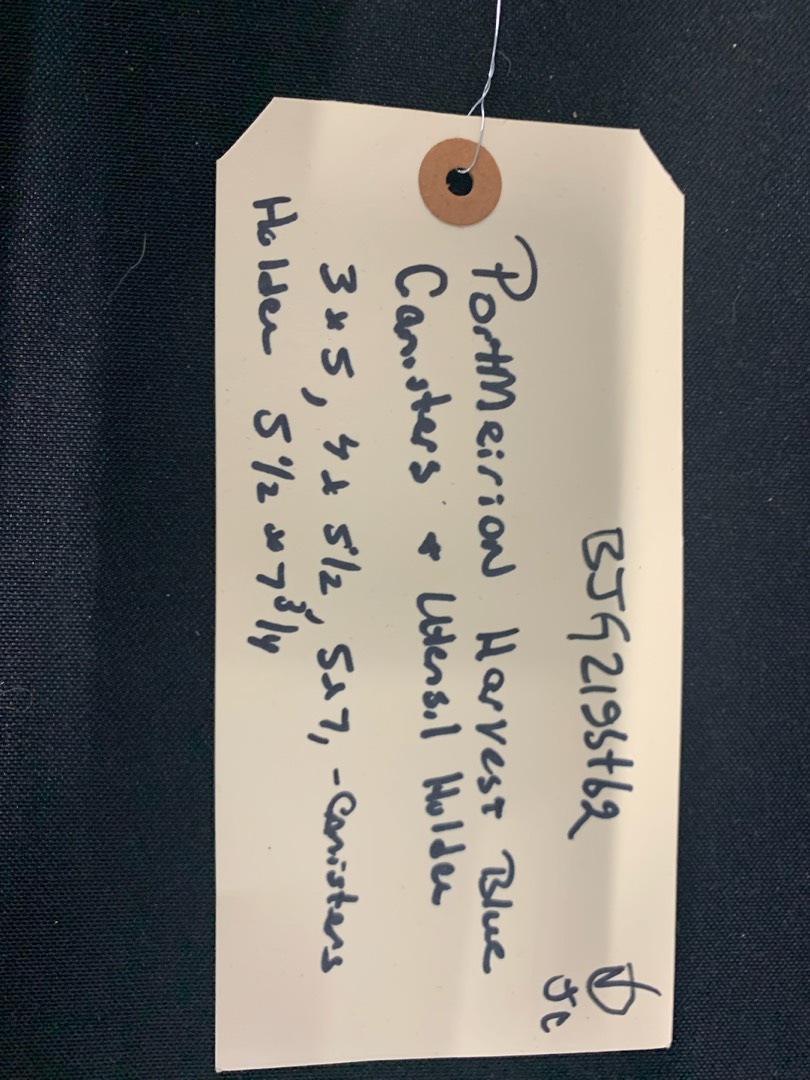 JC
PortMeirion Harvest Blue
Canisters & Utensil Holder
3 x 5, 4 x 5 1/2, 5 x 7, - Canisters
Holder 5 1/2 x 7 3/4